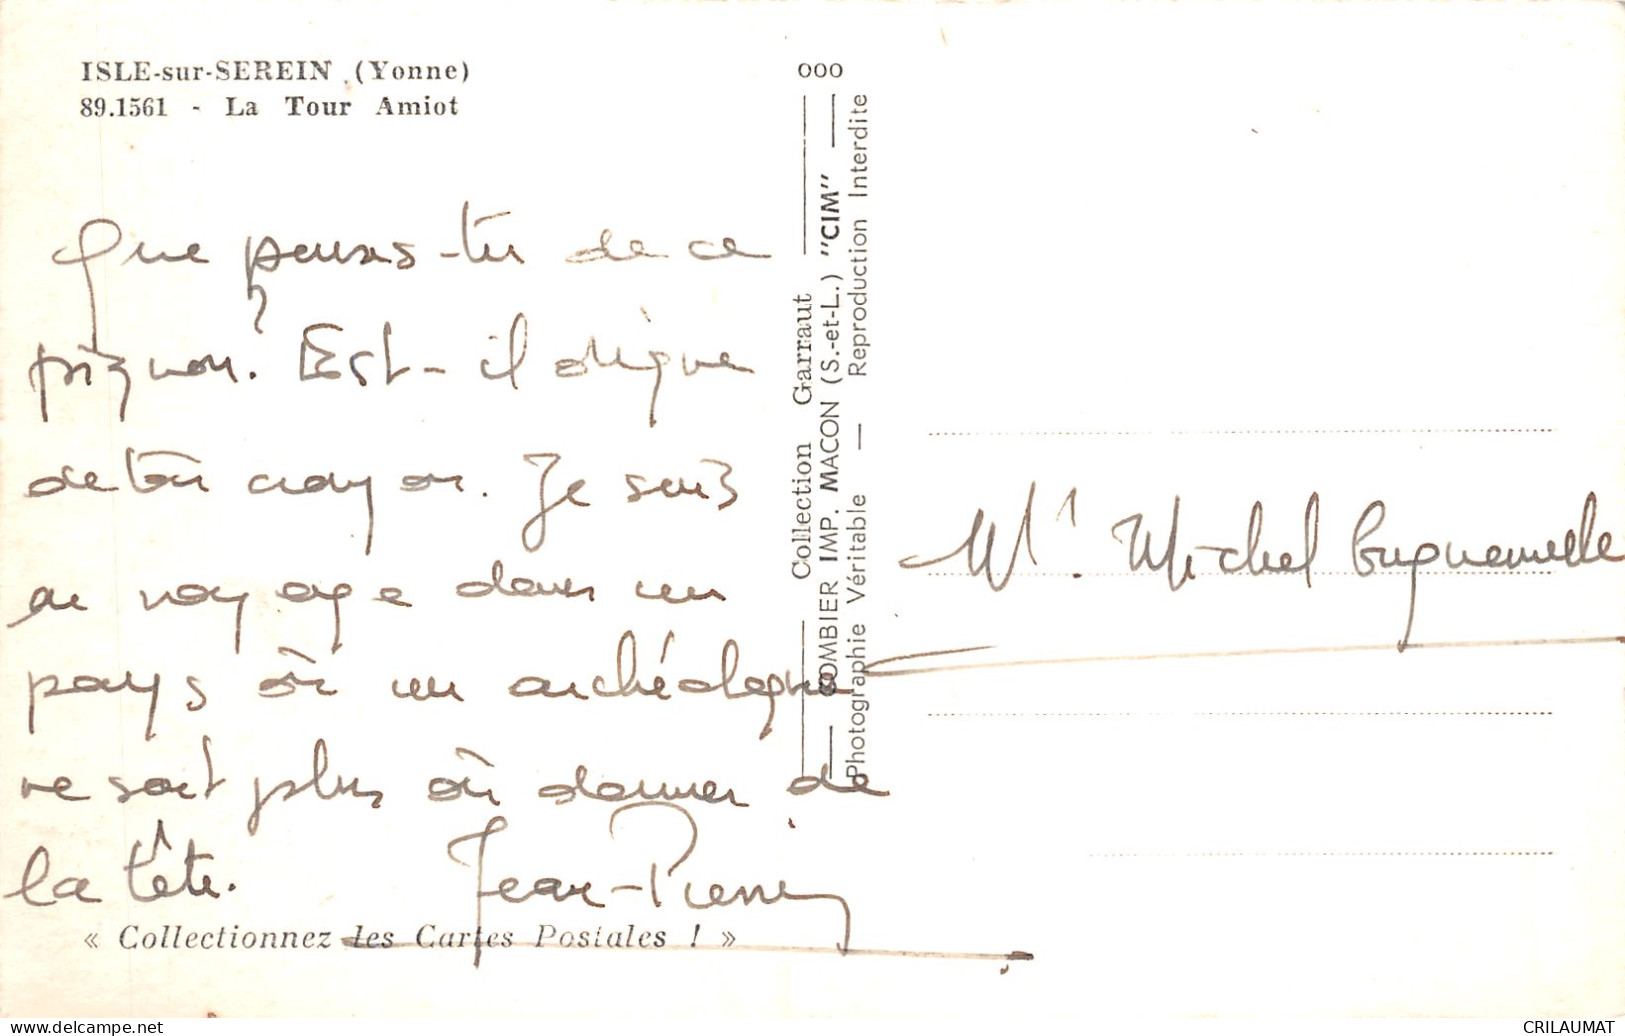 ISLE-sur-SEREIN (Yonne)
89.1561 - La Tour Amiot
Que penses-tu de ce
pignon? Est-il digne
de ton crayon. Je suis
en voyage dans un
pays où un archéologue
ne sait plus où donner de
la tête. Jean-Pierre
« Collectionnez les Cartes Postales ! »
000
Collection Garraut
COMBIER IMP. MACON (S.-et-L.) "CIM"
Photographie Véritable — Reproduction Interdite
Mr. Michel
delcampe.net
CRILAUMAT